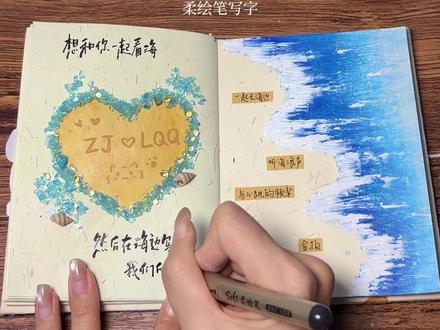 柔绘笔写字
想和你一起看海
ZJ♡LQQ
然后在海边写
我们的
一起去海边
听海浪声
与心跳的频率
合拍